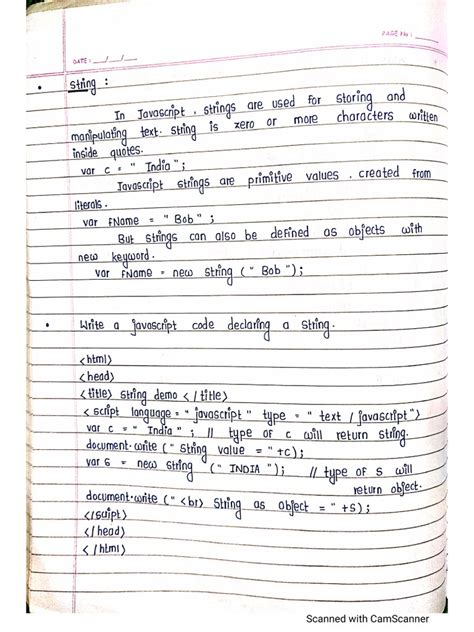 PAGE No :
DATE : / /
• string :
In Javascript , strings are used for storing and
manipulating text. string is zero or more characters written
inside quotes.
var c = " India " ;
Javascript strings are primitive values , created from
literals.
var fName = " Bob " ;
But strings can also be defined as objects with
new keyword.
var fName = new string ( " Bob " ) ;
• Write a javascript code declaring a string.
<html>
<head>
<title> string demo </title>
< script language = " javascript " type = " text / javascript ">
var c = " India " ; // type of c will return string.
document.write ( " string value = " +c) ;
var S = new string ( " INDIA " ) ; // type of S will
return object.
document.write ( " <br> String as object = " +S) ;
</script>
</head>
</html>
Scanned with CamScanner